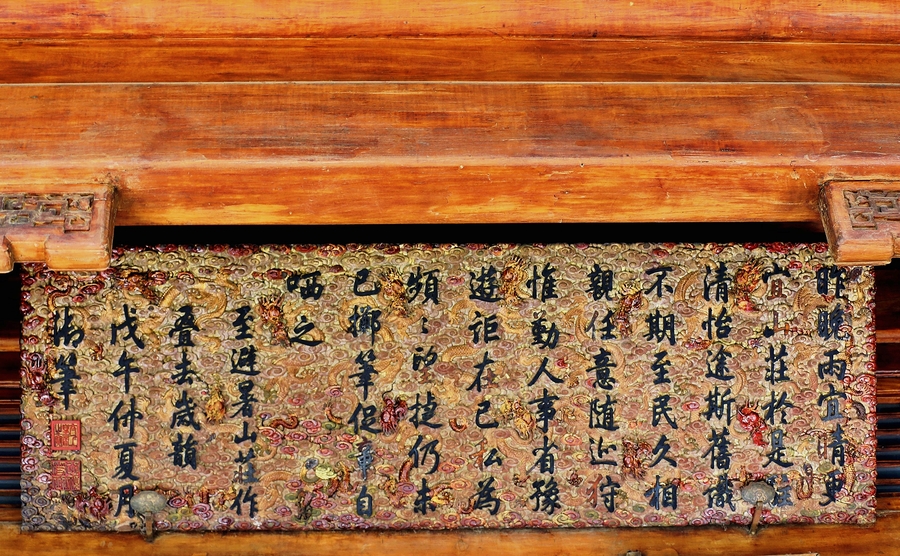 昨晚雨宜晴更
宜山莊於是
清怡途斯舊識
不期至民久相
親任意隨近狩
惟勤人事省豫
遊詎在己公為
頻〻捷仍未
已擲筆促章自
哂之
至避暑山莊作
疊去歲韻
戊午仲夏月
御筆